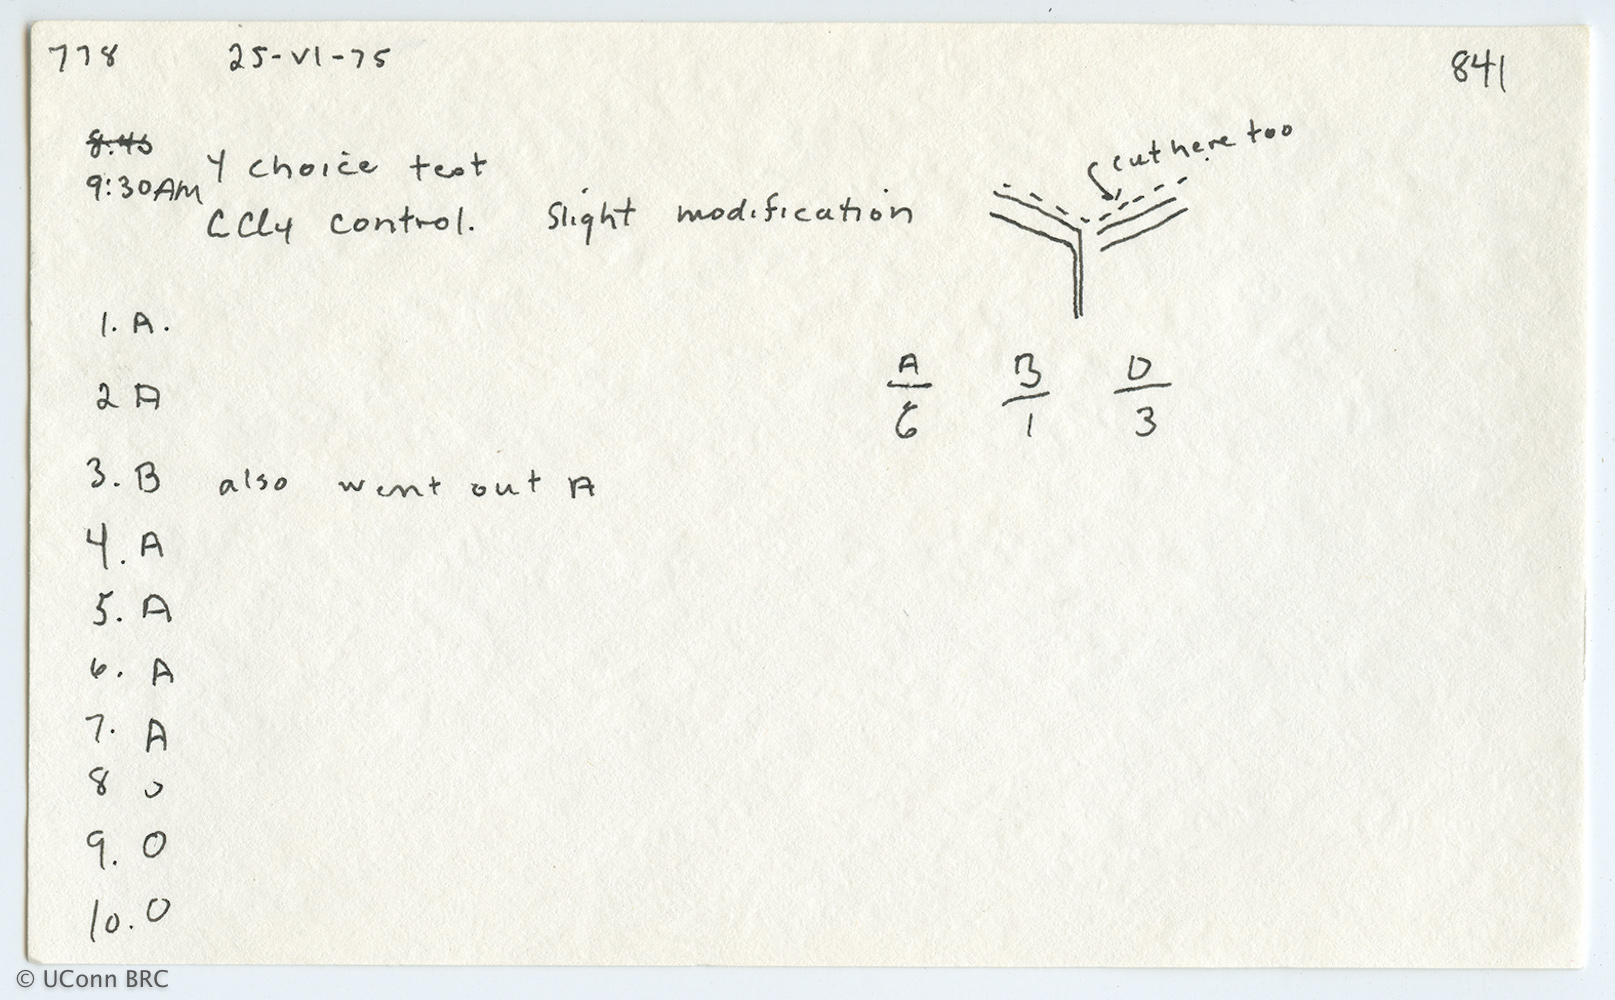 778 25-VI-75 841
8:45
9:30AM
Y choice test
CCl4 control. Slight modification
cut here too
1. A.
2 A
3. B also went out A
4. A
5. A
6. A
7. A
8 0
9. 0
10. 0
A B 0
6 1 3
© UConn BRC